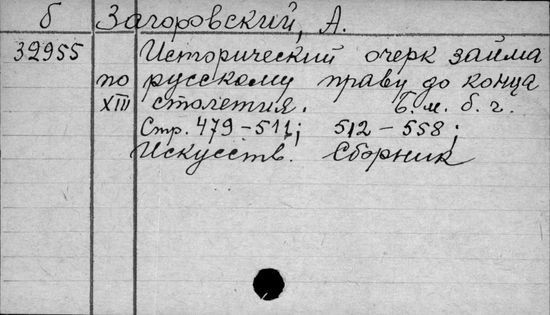 б Загоровский, А.
32955 Исторический очерк займа
по русскому праву до конца
XIII столетия. Б. м. б. г.
Стр. 479-511; 512-558;
Искусств. Сборник